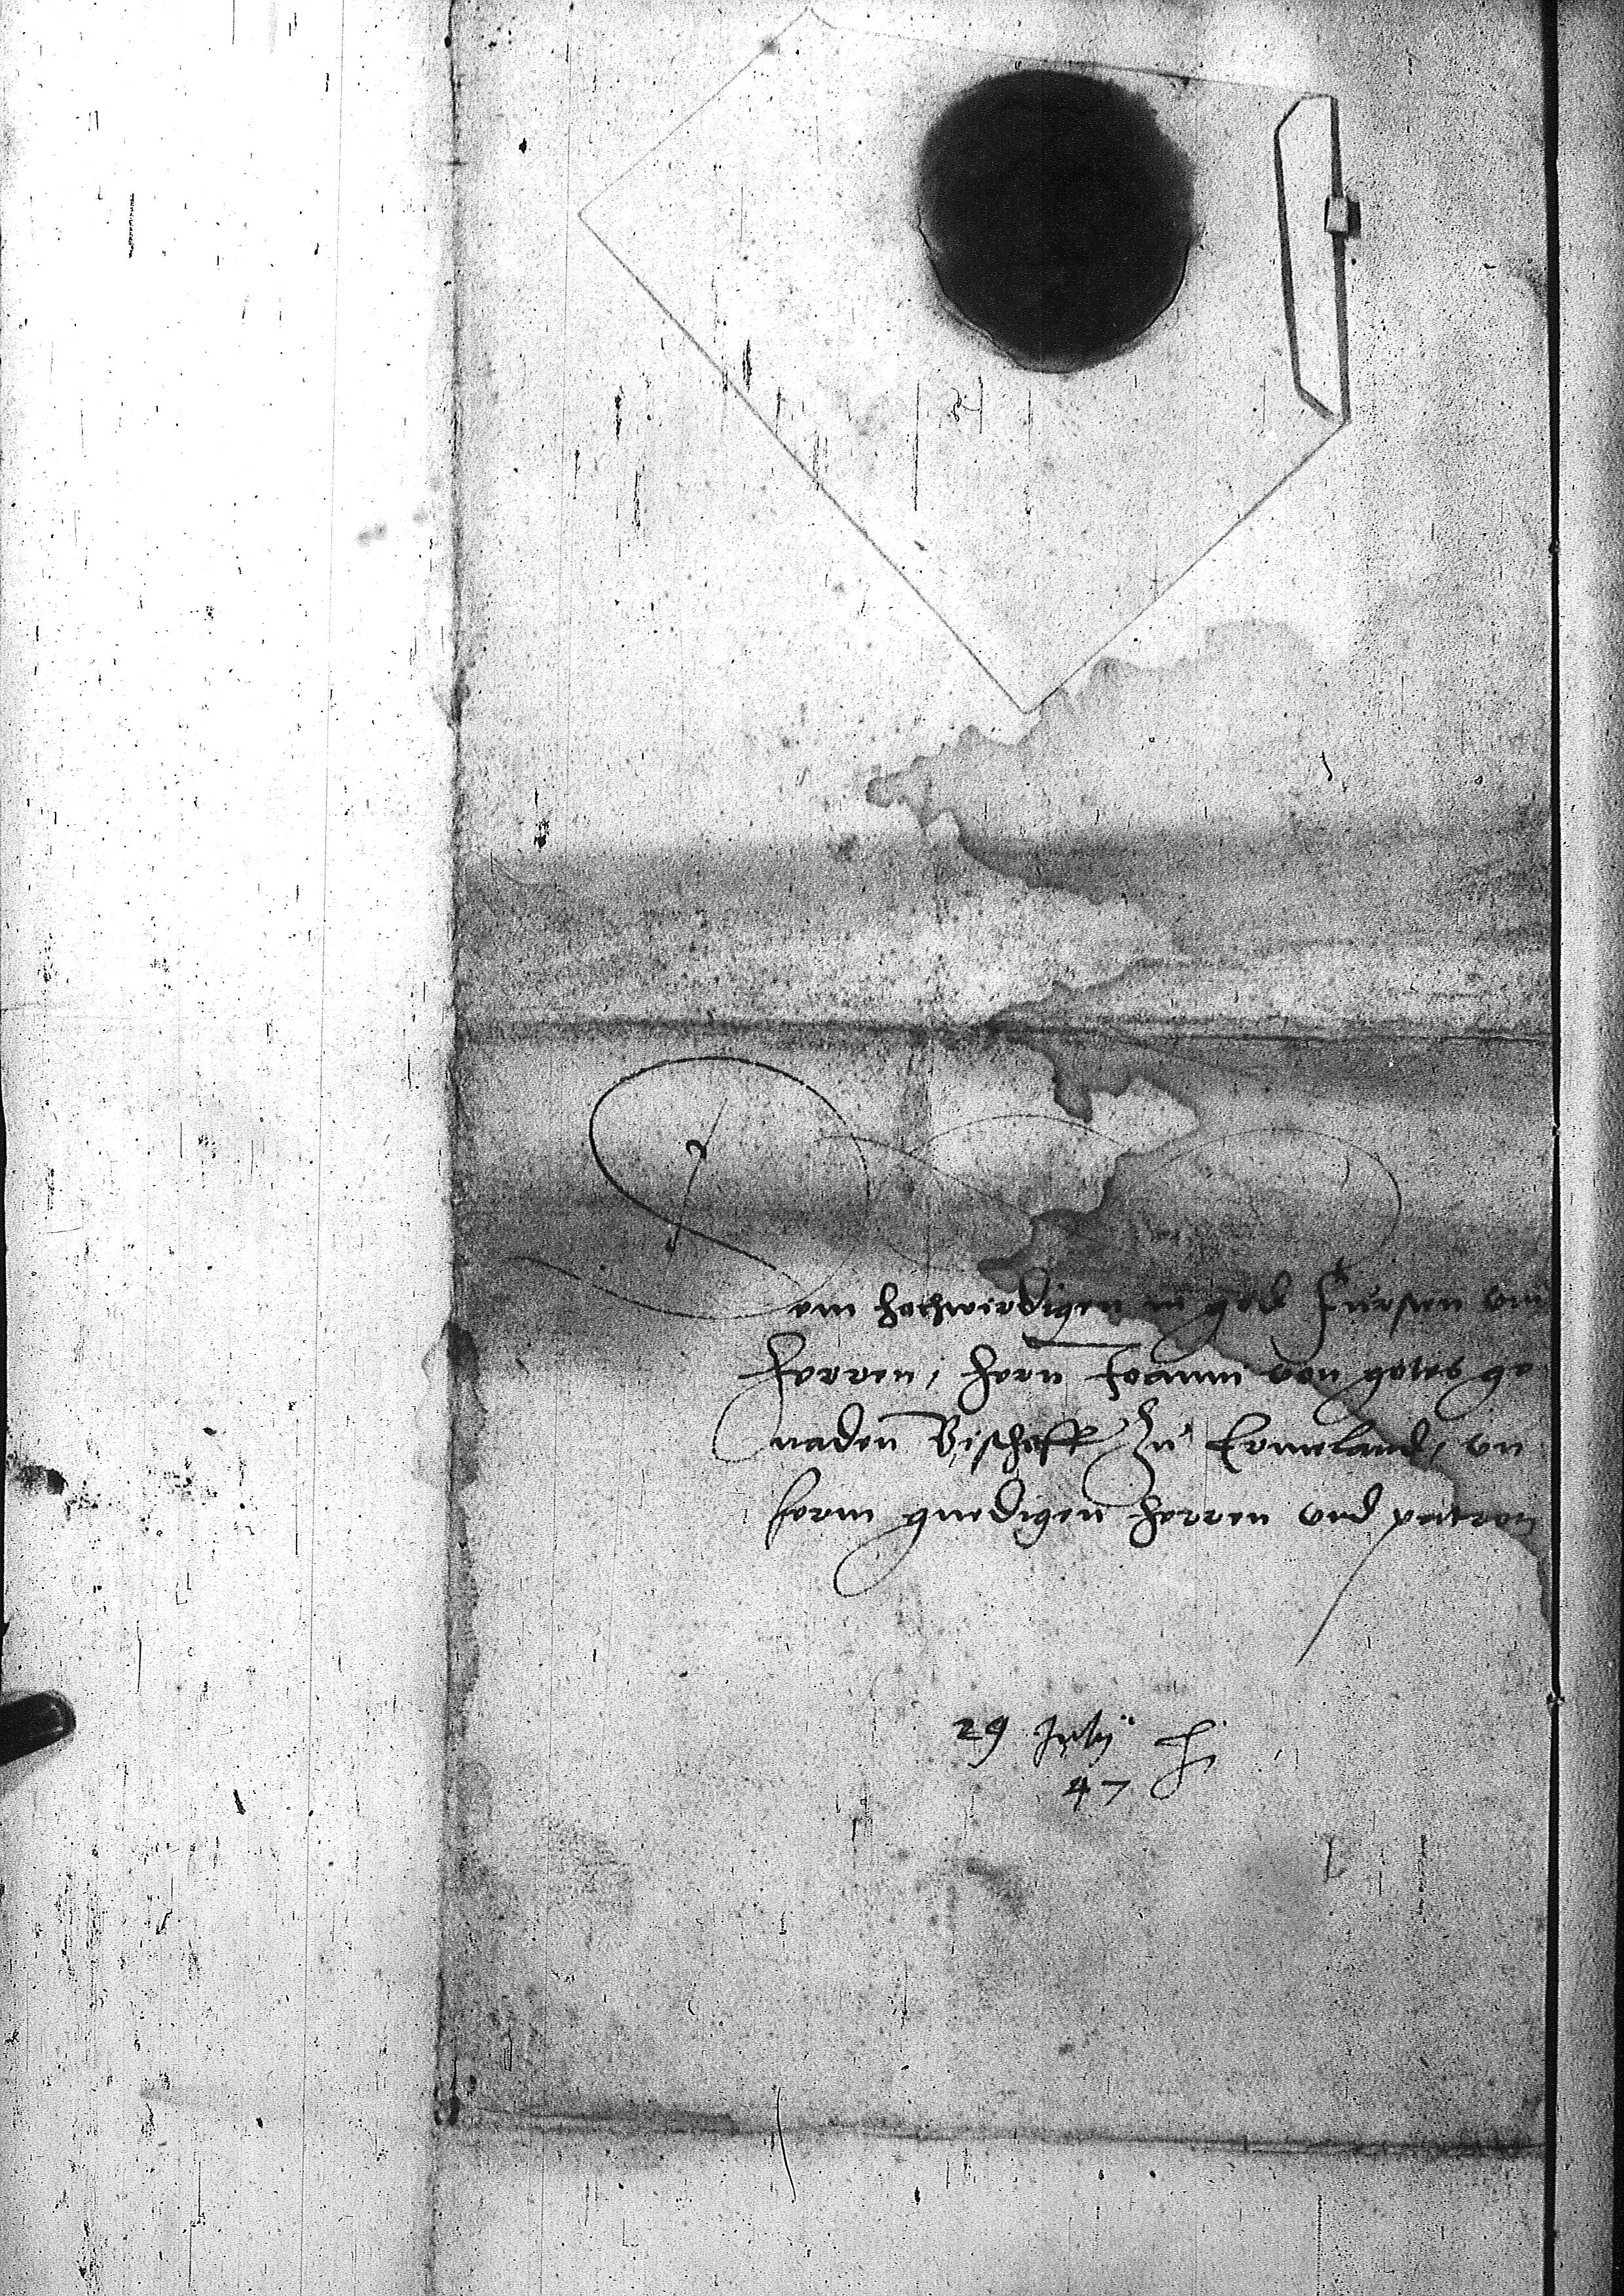 Dem hochwirdigen in god Fursten vnd
Herren, hern Joanni von gotes ge
naden Bischoff zu Ermeland, vn
serm gnedigen herren vnd patron
29 Julij
47